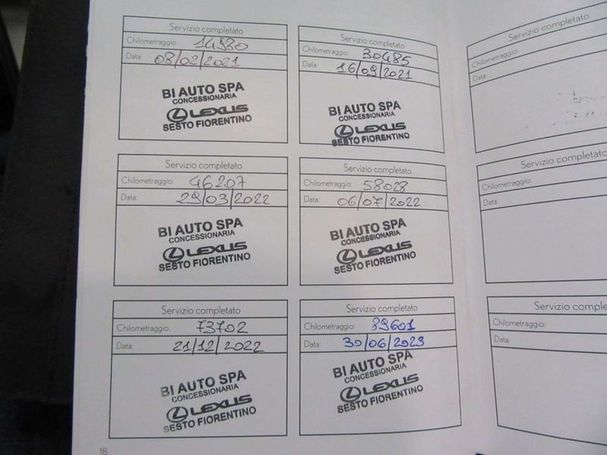 Servizio completato
Chilometraggio: 14580
Data: 08/02/2021
BI AUTO SPA
CONCESSIONARIA
LEXUS
SESTO FIORENTINO
Servizio completato
Chilometraggio: 30485
Data: 16/09/2021
BI AUTO SPA
CONCESSIONARIA
LEXUS
SESTO FIORENTINO
Servizio completato
Chilometraggio:
Data:
Servizio completato
Chilometraggio: 46207
Data: 29/03/2022
BI AUTO SPA
CONCESSIONARIA
LEXUS
SESTO FIORENTINO
Servizio completato
Chilometraggio: 58028
Data: 06/07/2022
BI AUTO SPA
CONCESSIONARIA
LEXUS
SESTO FIORENTINO
Servizio completato
Chilometraggio:
Data:
Servizio completato
Chilometraggio: 73702
Data: 21/12/2022
BI AUTO SPA
CONCESSIONARIA
LEXUS
SESTO FIORENTINO
Servizio completato
Chilometraggio: 89601
Data: 30/06/2023
BI AUTO SPA
CONCESSIONARIA
LEXUS
SESTO FIORENTINO
Servizio completato
Chilometraggio:
Data:
16